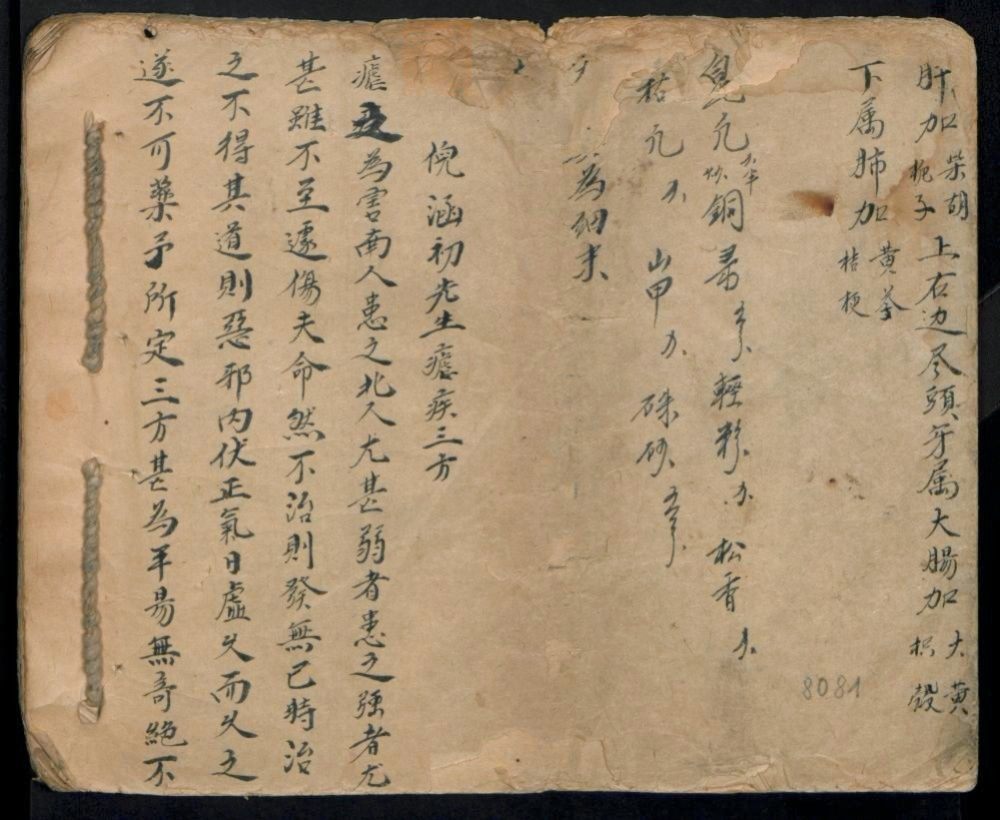 肝加柴胡梔子上右边尽頭牙属大腸加大黄枳殻
下属肺加黄芩桔梗
銅青 輕粉 松香
山甲 硃砂
為細末
倪涵初先生瘧疾三方
瘧之為害南人患之北人尤甚弱者患之强者尤
甚雖不至遽傷夫命然不治則發無已時治
之不得其道則惡邪内伏正氣日虛久而久之
遂不可藥予所定三方甚為平易無奇絶不
8081